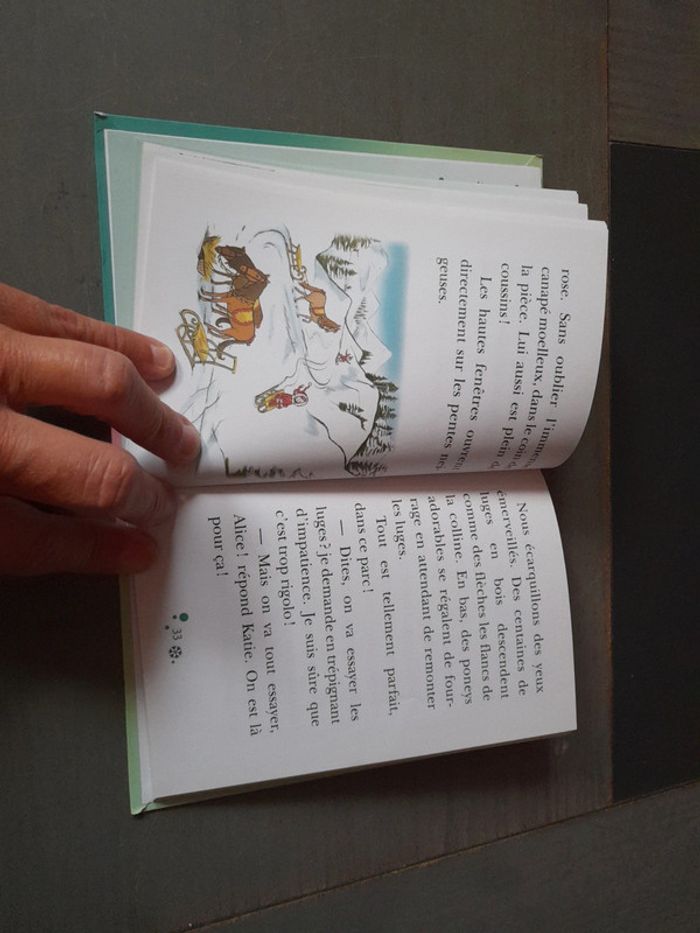 rose. Sans oublier
canapé moelleux, dans le coin
la pièce. Lui aussi est plein
coussins !
Les hautes fenêtres
directement sur les pentes
geuses.
Nous écarquillons des yeux
émerveillés. Des centaines de
luges en bois descendent
comme des flèches les flancs de
la colline. En bas, des poneys
adorables se régalent de four-
rage en attendant de remonter
les luges.
Tout est tellement parfait,
dans ce parc !
— Dites, on va essayer les
luges ? je demande en trépignant
d'impatience. Je suis sûre que
c'est trop rigolo !
— Mais on va tout essayer,
Alice ! répond Katie. On est là
pour ça !
33